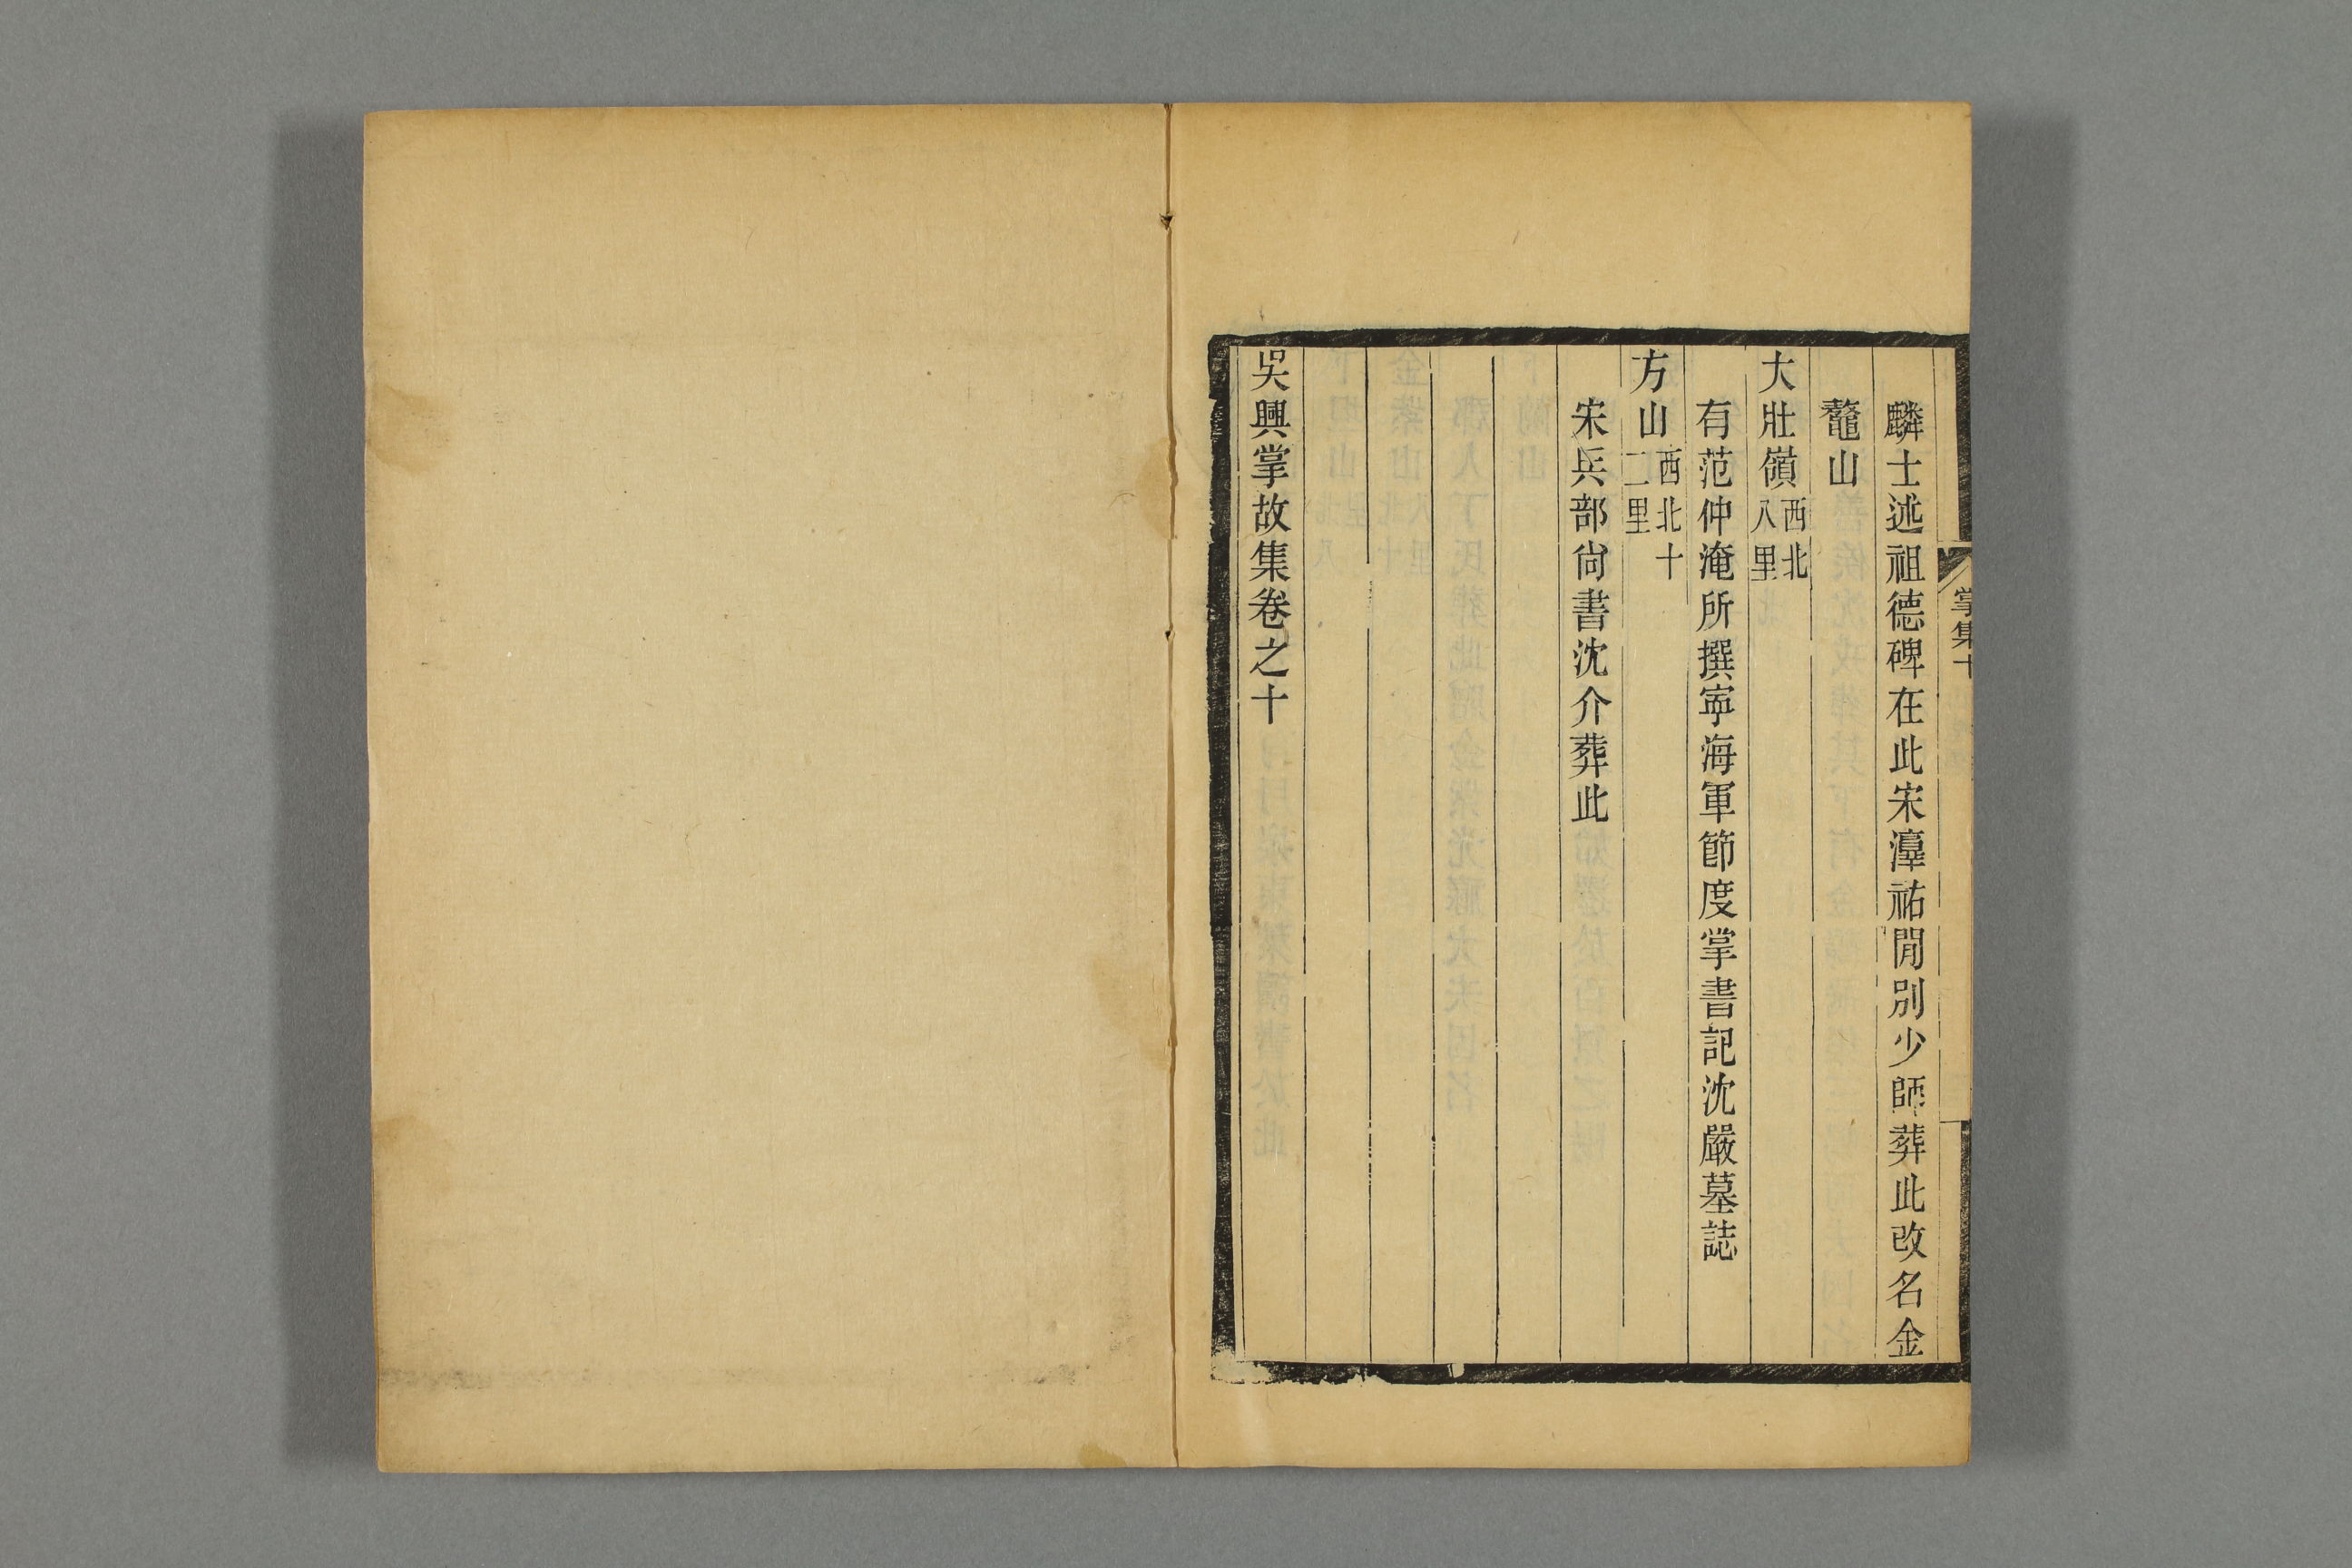 麟士述祖德碑在此宋淳祐閒別少師葬此改名金
鼇山
大壯嶺西北八里
有范仲淹所撰寧海軍節度掌書記沈嚴墓誌
方山西北十二里
宋兵部尙書沈介葬此
吳興掌故集卷之十
掌集十